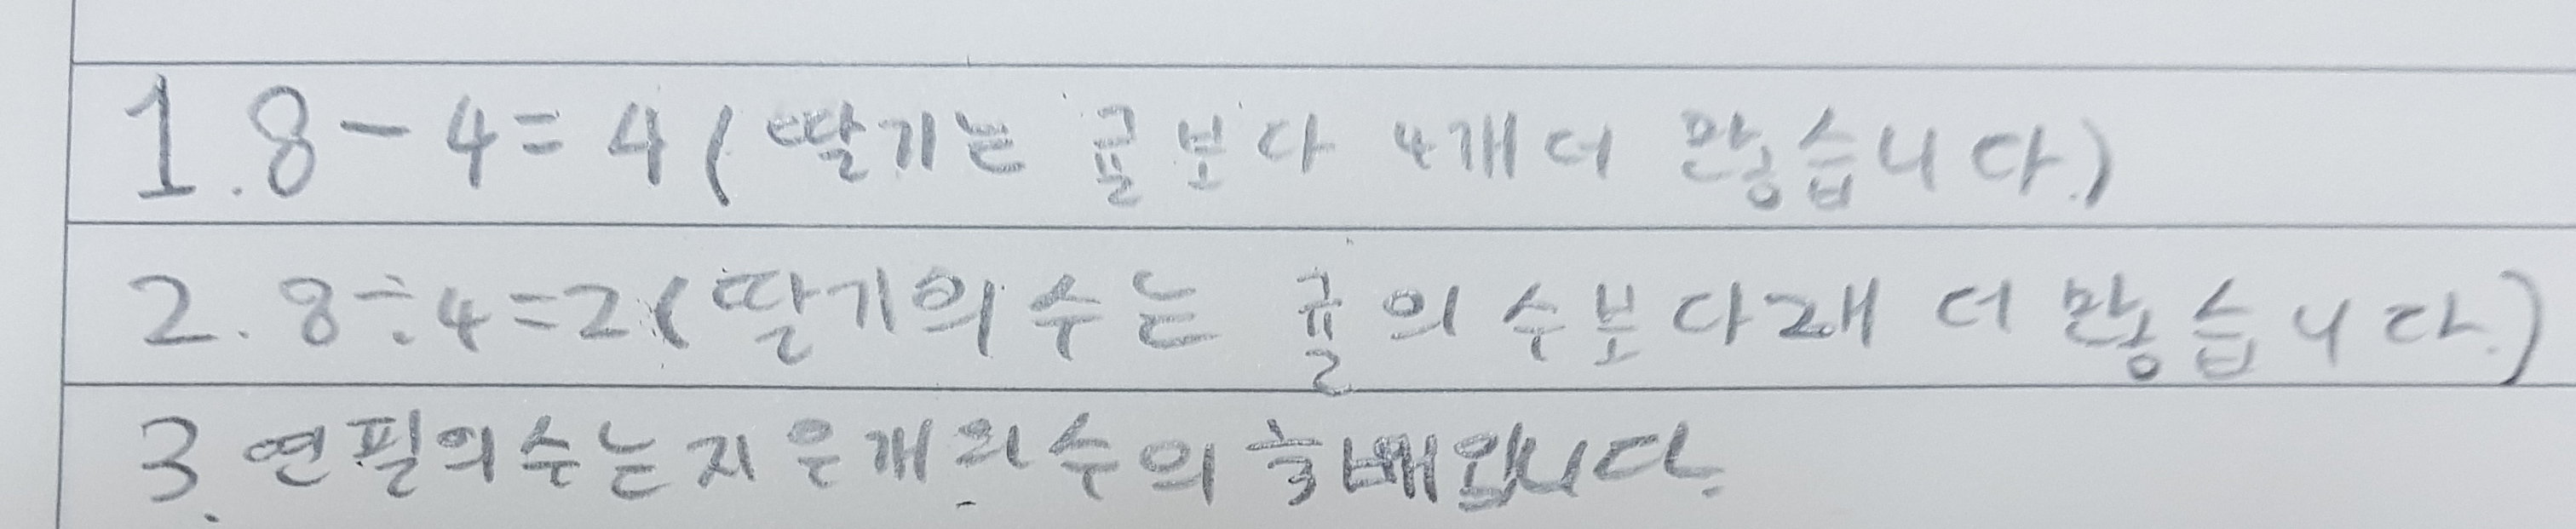 1. 8-4=4 (딸기는 귤보다 4개 더 많습니다.)
2. 8÷4=2 (딸기의 수는 귤의 수보다 2배 더 많습니다.)
3. 연필의 수는 지우개의 수의 배입니다.